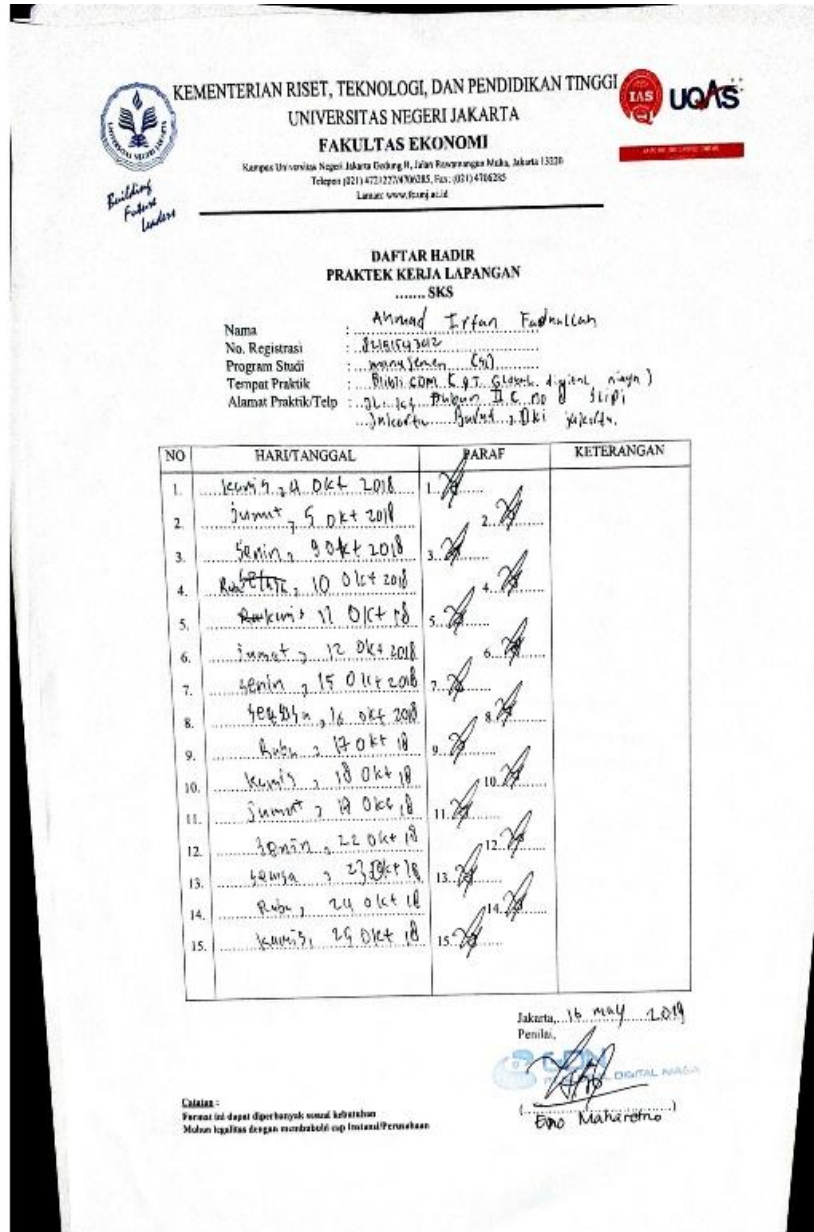 KEMENTERIAN RISET, TEKNOLOGI, DAN PENDIDIKAN TINGGI
UNIVERSITAS NEGERI JAKARTA
FAKULTAS EKONOMI
Kampus Universitas Negeri Jakarta Gedung R, Jalan Rawamangun Muka, Jakarta 13220
Telepon (021) 4721227/4706285, Fax: (021) 4706285
Laman: www.fe.unj.ac.id
Building
Future
Leaders
IAS
UQAS
DAFTAR HADIR
PRAKTEK KERJA LAPANGAN
....... SKS
Nama : Ahmad Irfan Fadhullah
No. Registrasi :
Program Studi : manajemen (S1)
Tempat Praktik : Blibli.com ( PT. Global digital niaga )
Alamat Praktik/Telp : JL. no 8 Slipi
Jakarta Barat, Dki jakarta.
NO HARI/TANGGAL PARAF KETERANGAN
1. kamis, 4 Okt 2018 1.
2. jumat, 5 okt 2018 2.
3. Senin, 9 Okt 2018 3.
4. 10 Okt 2018 4.
5. kamis 11 Okt 18 5.
6. jumat, 12 Okt 2018 6.
7. senin, 15 Okt 2018 7.
8. 16 okt 2018 8.
9. Rabu, 17 Okt 18 9.
10. Kamis, 18 Okt 18 10.
11. jumat, 19 Okt 18 11.
12. senin, 22 Okt 18 12.
13. selasa, 23 Okt 18 13.
14. Rabu, 24 Okt 18 14.
15. kamis, 25 Okt 18 15.
Jakarta, 16 may 2019
Penilai,
GDN
DIGITAL NIAGA
(....................)
Eno Maharetno
Catatan :
Format ini dapat diperbanyak sesuai kebutuhan
Mohon legalitas dengan membubuhi cap Instansi/Perusahaan